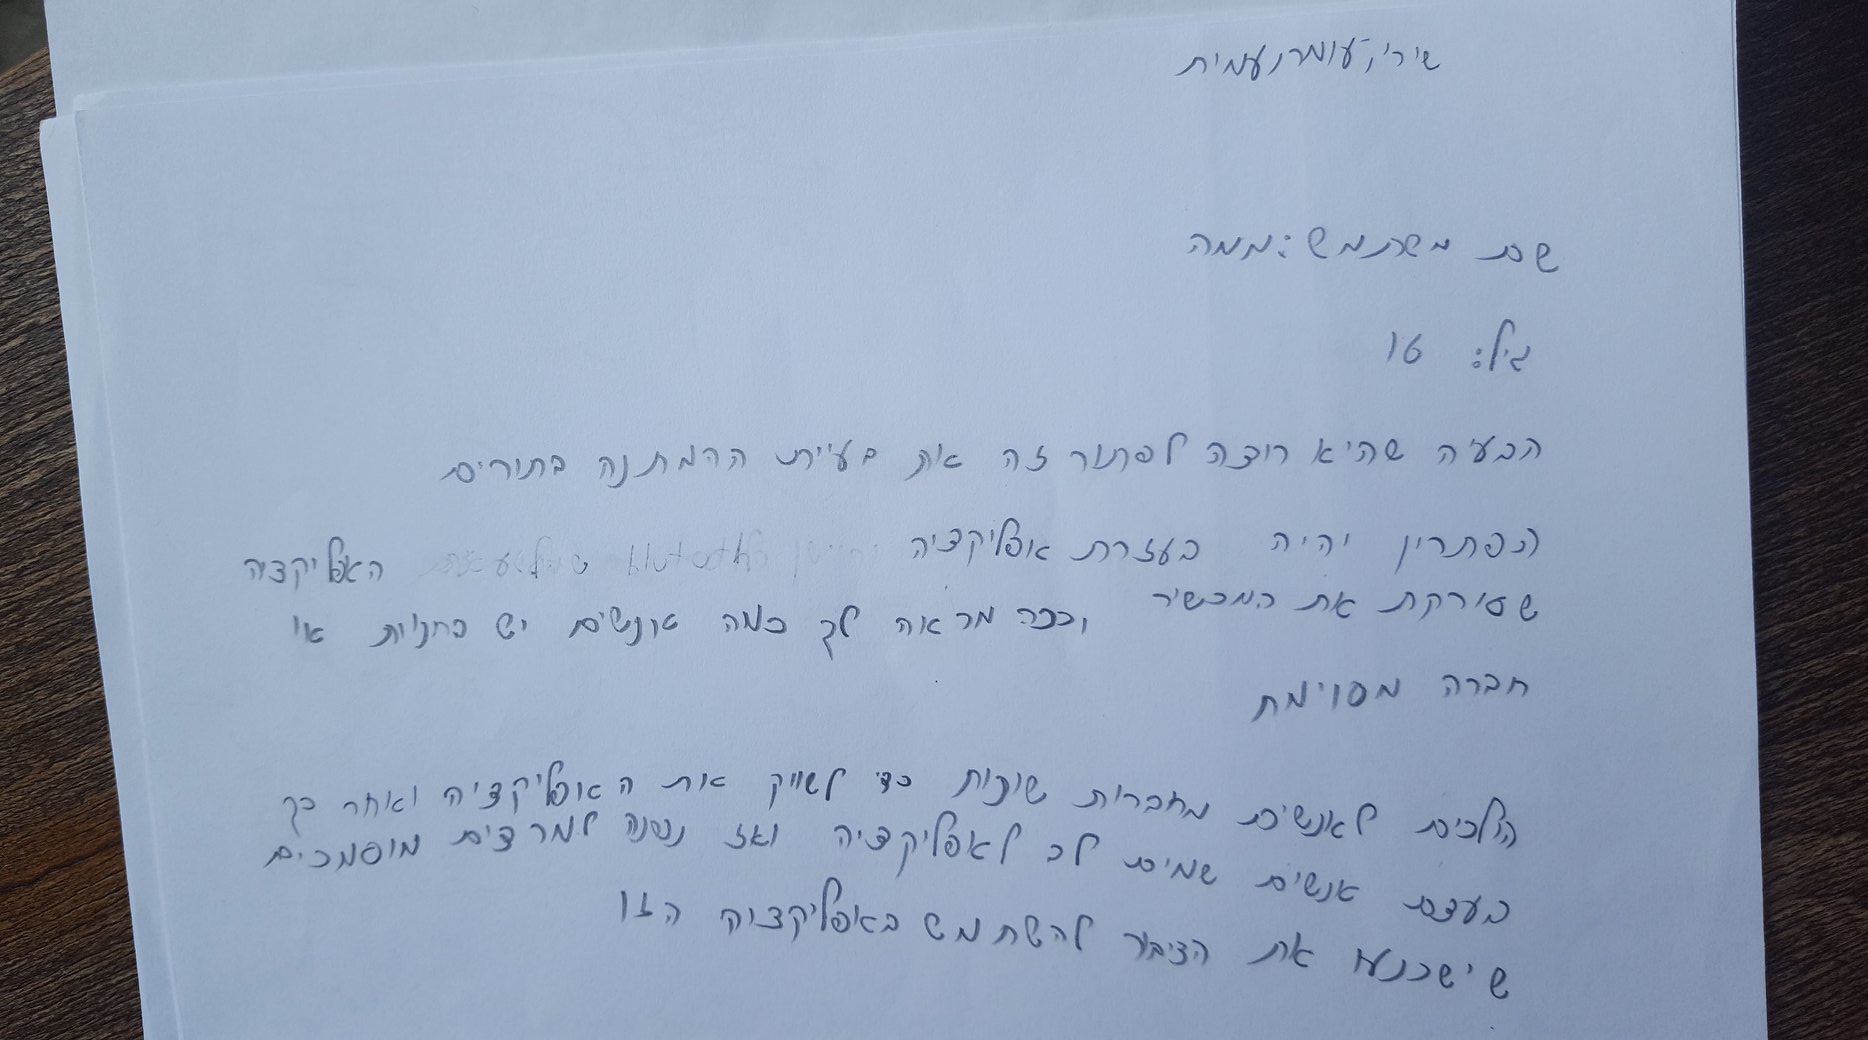 שירי, עומר, עמית
שם משתמש: ממה
גיל: 16
הבעיה שהיא רוצה לפתור זה את בעיית ההמתנה בתורים
הפתרון יהיה בעזרת אפליקציה האפליקציה
שסורקת את המכשיר וככה מראה לך כמה אנשים יש בחנות או
חברה מסוימת
הולכים לאנשים מחברות שונות כדי לשווק את האפליקציה ואחר כך
בעצם אנשים שמים לב לאפליקציה ואז נפנה למרצים מוסמכים
שישכנעו את הציבור להשתמש באפליקציה הזו